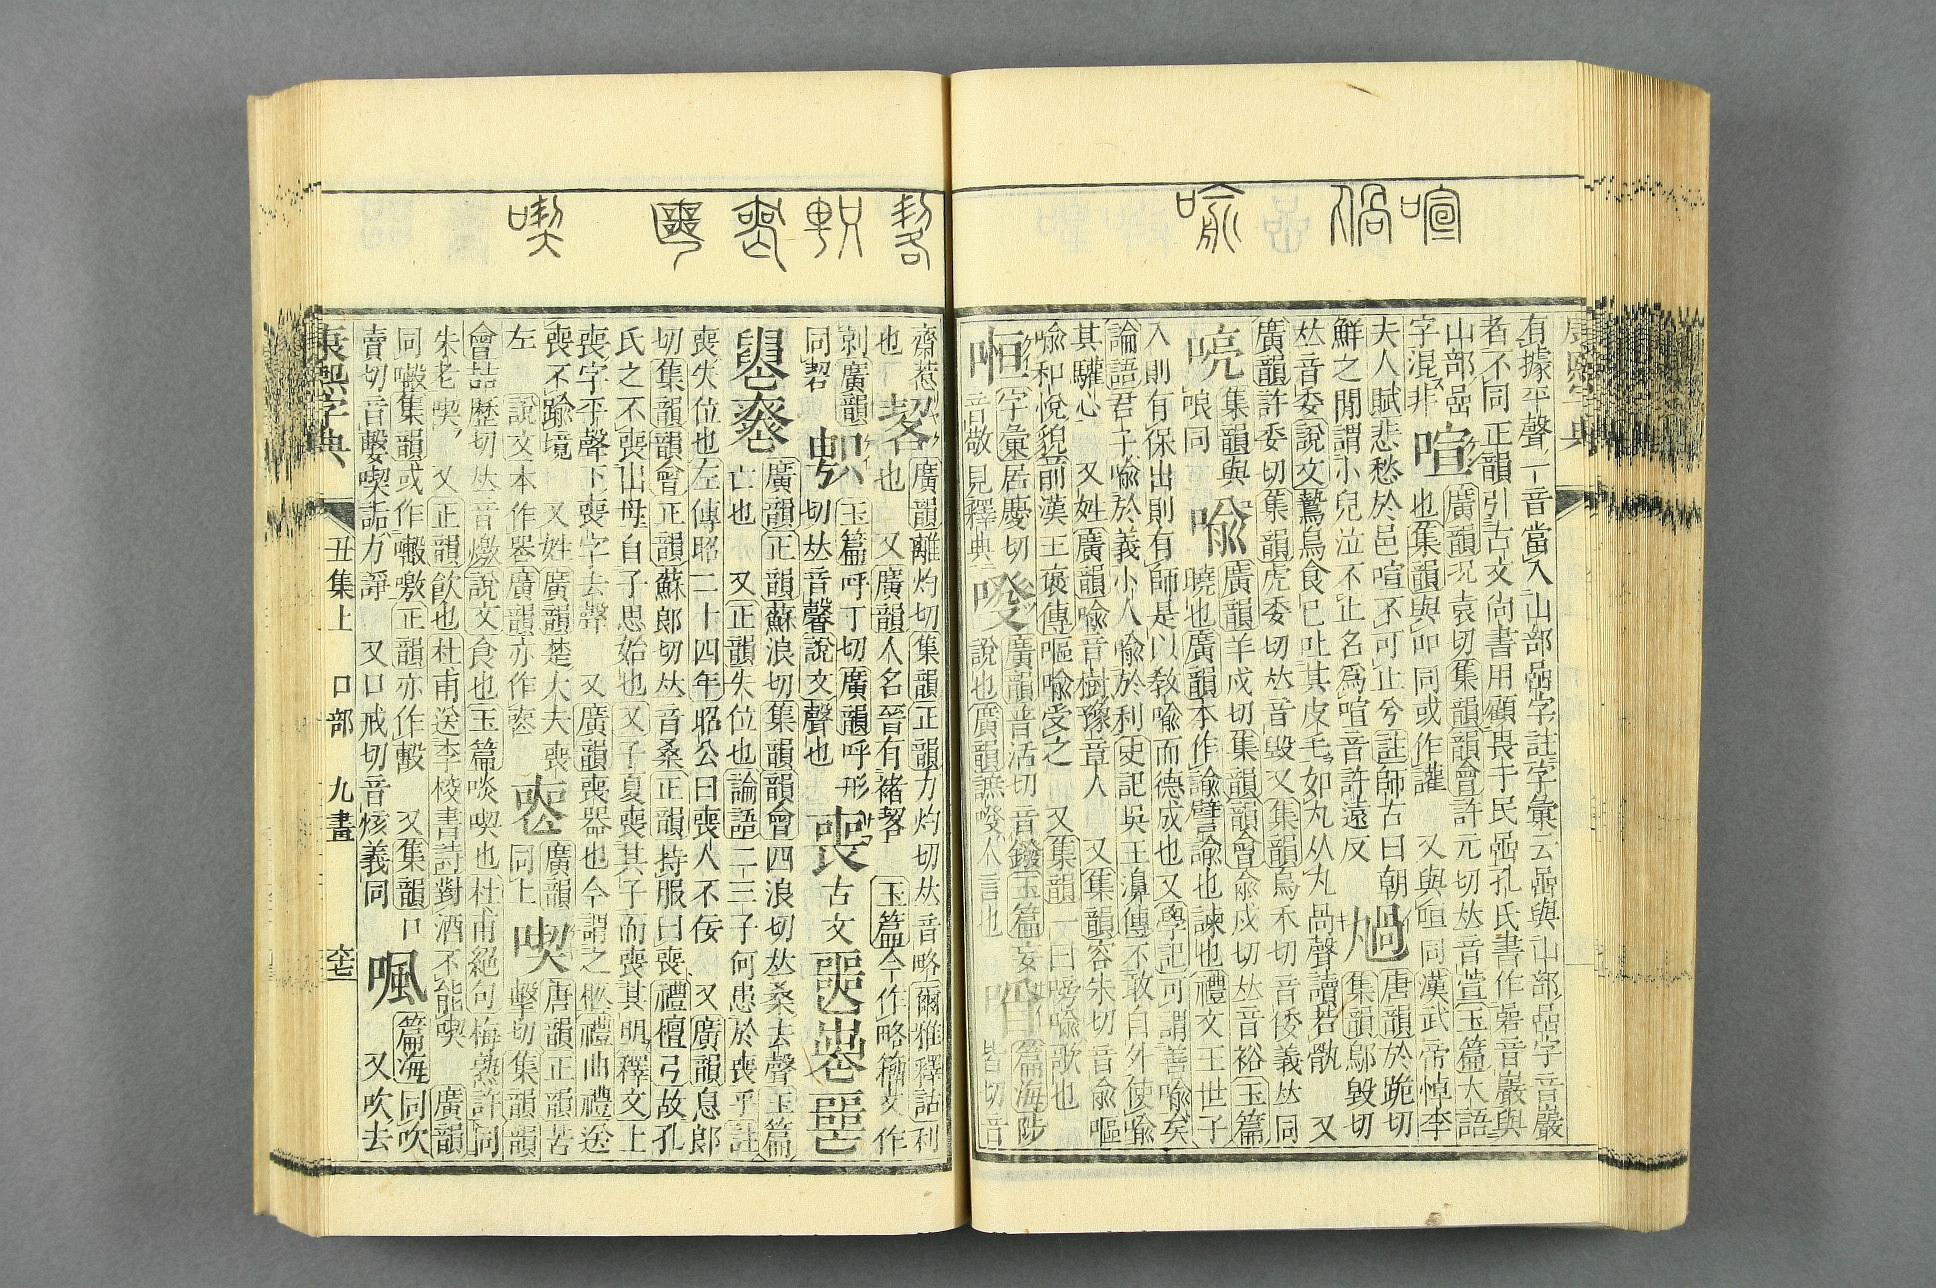 喧 㗻 喻
有據平聲一音當入山部嵒字註字彙云嵒與山部嵒字音巖
者不同正韻引古文尚書用顧畏于民嵒孔氏書作碞音巖與
山部嵒
字混非
喧
廣韻況袁切集韻韻會許元切𠀤音萱玉篇大語
也集韻與吅同或作讙 又與咺同漢武帝悼李
夫人賦悲愁於邑喧不可止兮註師古曰朝
鮮之閒謂小兒泣不止名爲喧音許遠反
㗻
唐韻於跪切
集韻鄔毀切
𠀤音委說文鷙鳥食已吐其皮毛如丸从丸咼聲讀若骫 又
廣韻許委切集韻虎委切𠀤音毀又集韻烏禾切音倭義𠀤同
喨
集韻與
哴同
喻
廣韻羊戍切集韻韻會兪戍切𠀤音裕玉篇
曉也廣韻本作諭譬諭也諫也禮文王世子
入則有保出則有師是以敎喻而德成也又學記可謂善喻矣
論語君子喻於義小人喻於利史記吳王濞傳不敢自外使喻
其驩心 又姓廣韻喻音樹豫章人 又集韻容朱切音兪嘔
喻和悅貌前漢王襃傳嘔喻受之 又集韻一曰嗙喻歌也
字彙居慶切
音敬見釋典
廣韻普活切音鏺玉篇妄
說也廣韻譕人言也
篇海陟
皆切音
喪 喫
齋惹
也
㗉
廣韻離灼切集韻正韻力灼切𠀤音略爾雅釋詁利
也 又廣韻人名晉有褚㗉 玉篇今作略籀文作
玉篇呼丁切廣韻呼形
切𠀤音馨說文聲也
喪
古文
廣韻正韻蘇浪切集韻韻會四浪切𠀤桑去聲玉篇
亡也 又正韻失位也論語二三子何患於喪乎註
喪失位也左傳昭二十四年昭公曰喪人不佞 又廣韻息郎
切集韻韻會正韻蘇郎切𠀤音桑正韻持服曰喪禮檀弓故孔
氏之不喪出母自子思始也又子夏喪其子而喪其明釋文上
喪字平聲下喪字去聲 又廣韻喪器也今謂之柩禮曲禮送
喪不踰境 又姓廣韻楚大夫喪
左 說文本作㗊廣韻亦作
廣韻
同上
喫
唐韻正韻苦
擊切集韻韻
會喆歷切𠀤音燩說文食也玉篇啖喫也杜甫絕句梅熟許同
朱老喫 又正韻飮也杜甫送李校書詩對酒不能喫 廣韻
同集韻或作噭正韻亦作 又集韻口
賣切音喫詬力諍 又口戒切音烗義同
㗾
篇海同吹
又吹去
康熙字典 丑集上 口部 九畫